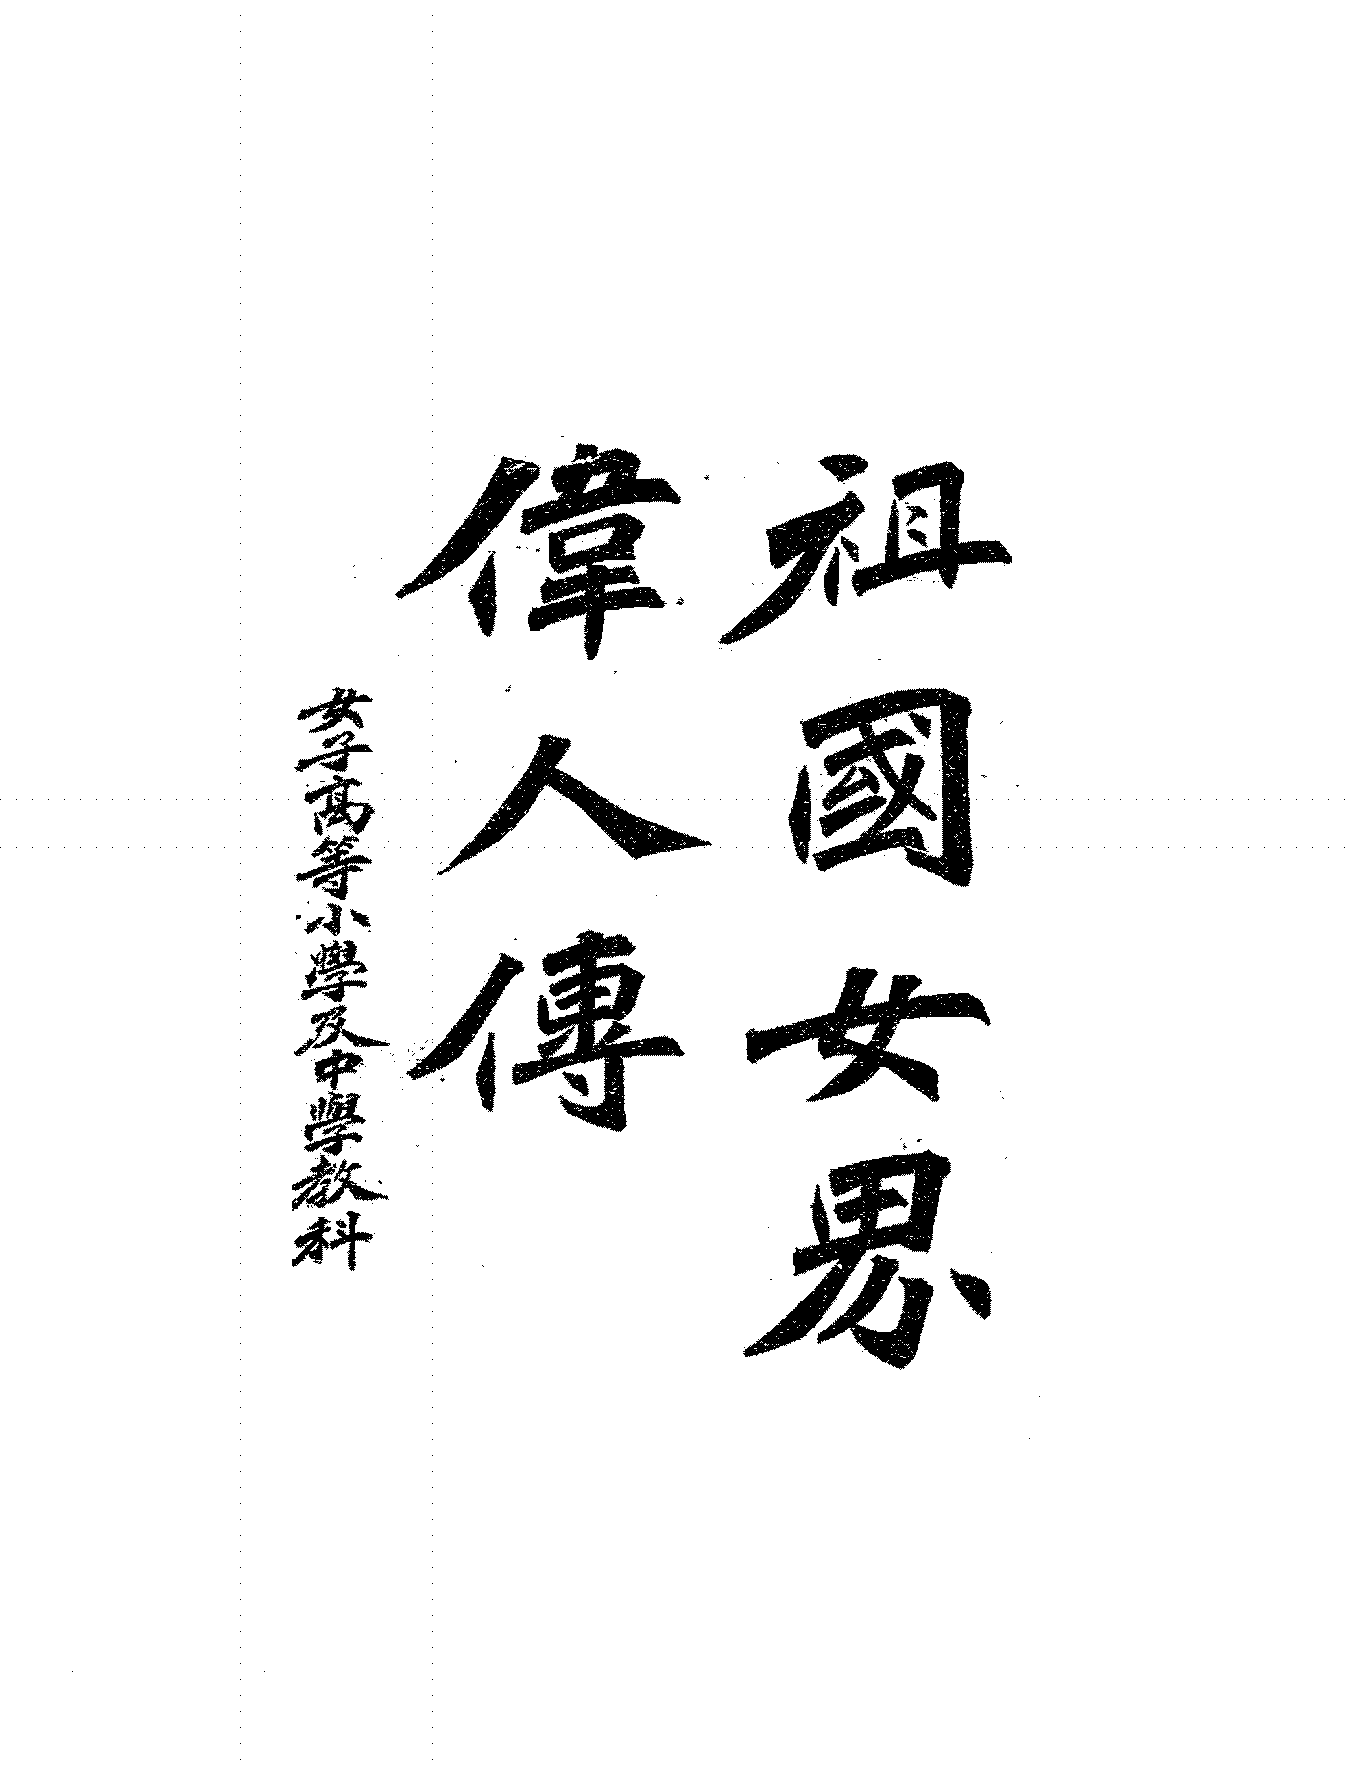 祖國女界
偉人傳
女子高等小學及中學教科